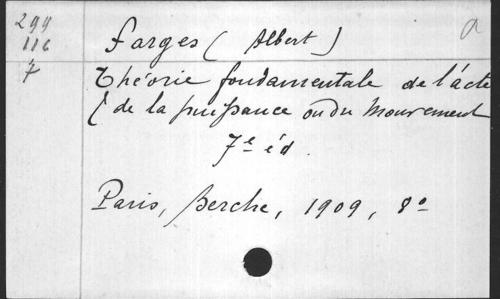 299
116
7
Farges (Albert)
a
Théorie fondamentale de l'acte
& de la puissance ou du Mouvement
7e éd.
Paris, Berche, 1909, 8o